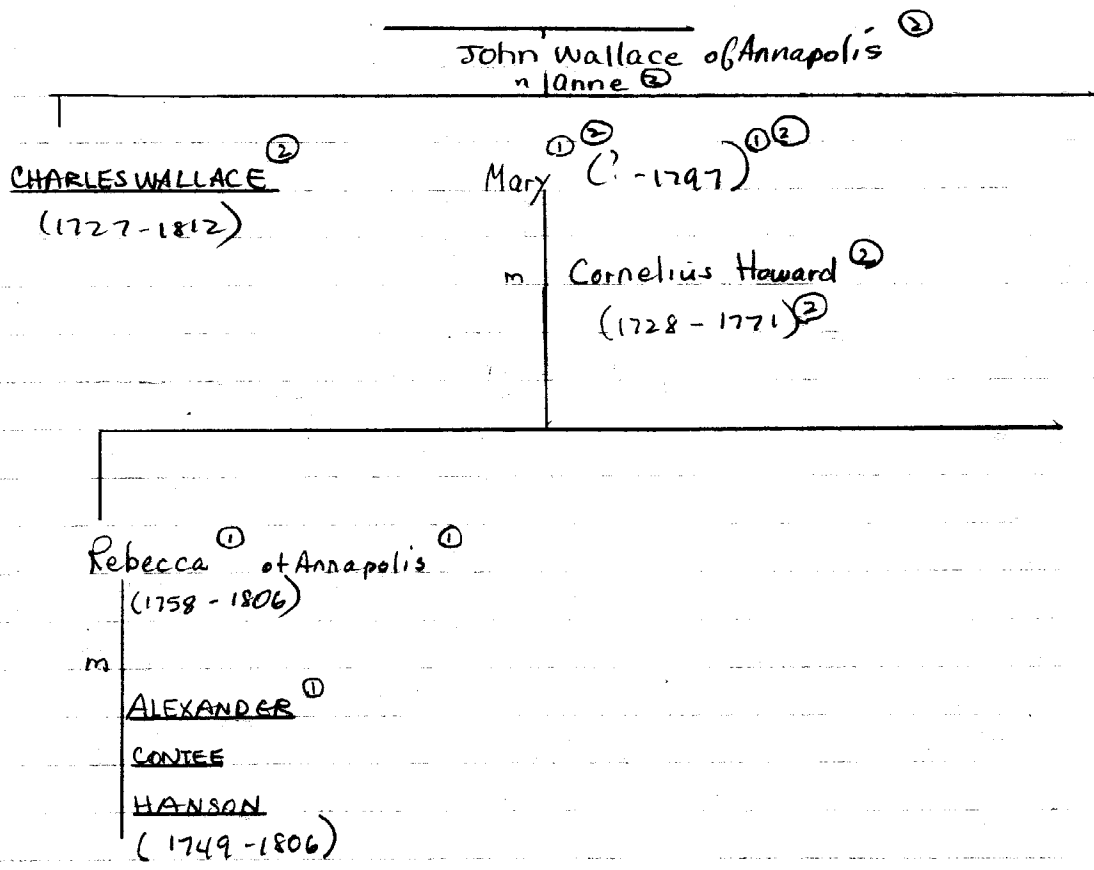 John Wallace of Annapolis ②
m Anne ②
CHARLES WALLACE ②
(1727-1812)
Mary ① ② (? -1797) ① ②
m Cornelius Howard ②
(1728 - 1771) ②
Rebecca ① of Annapolis ①
(1758 - 1806)
m
ALEXANDER ①
CONTEE
HANSON
(1749-1806)